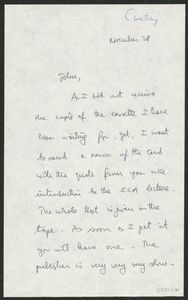 November 28
John,
As I did not receive
the copy of the cassette I have
been waiting for, yet, I want
to send a xerox of the card
with the quote from you
introduction to the ICA lecture.
The whole text is given on the
tape. As soon as I get it
you will have one. The
publisher is very very very slow.